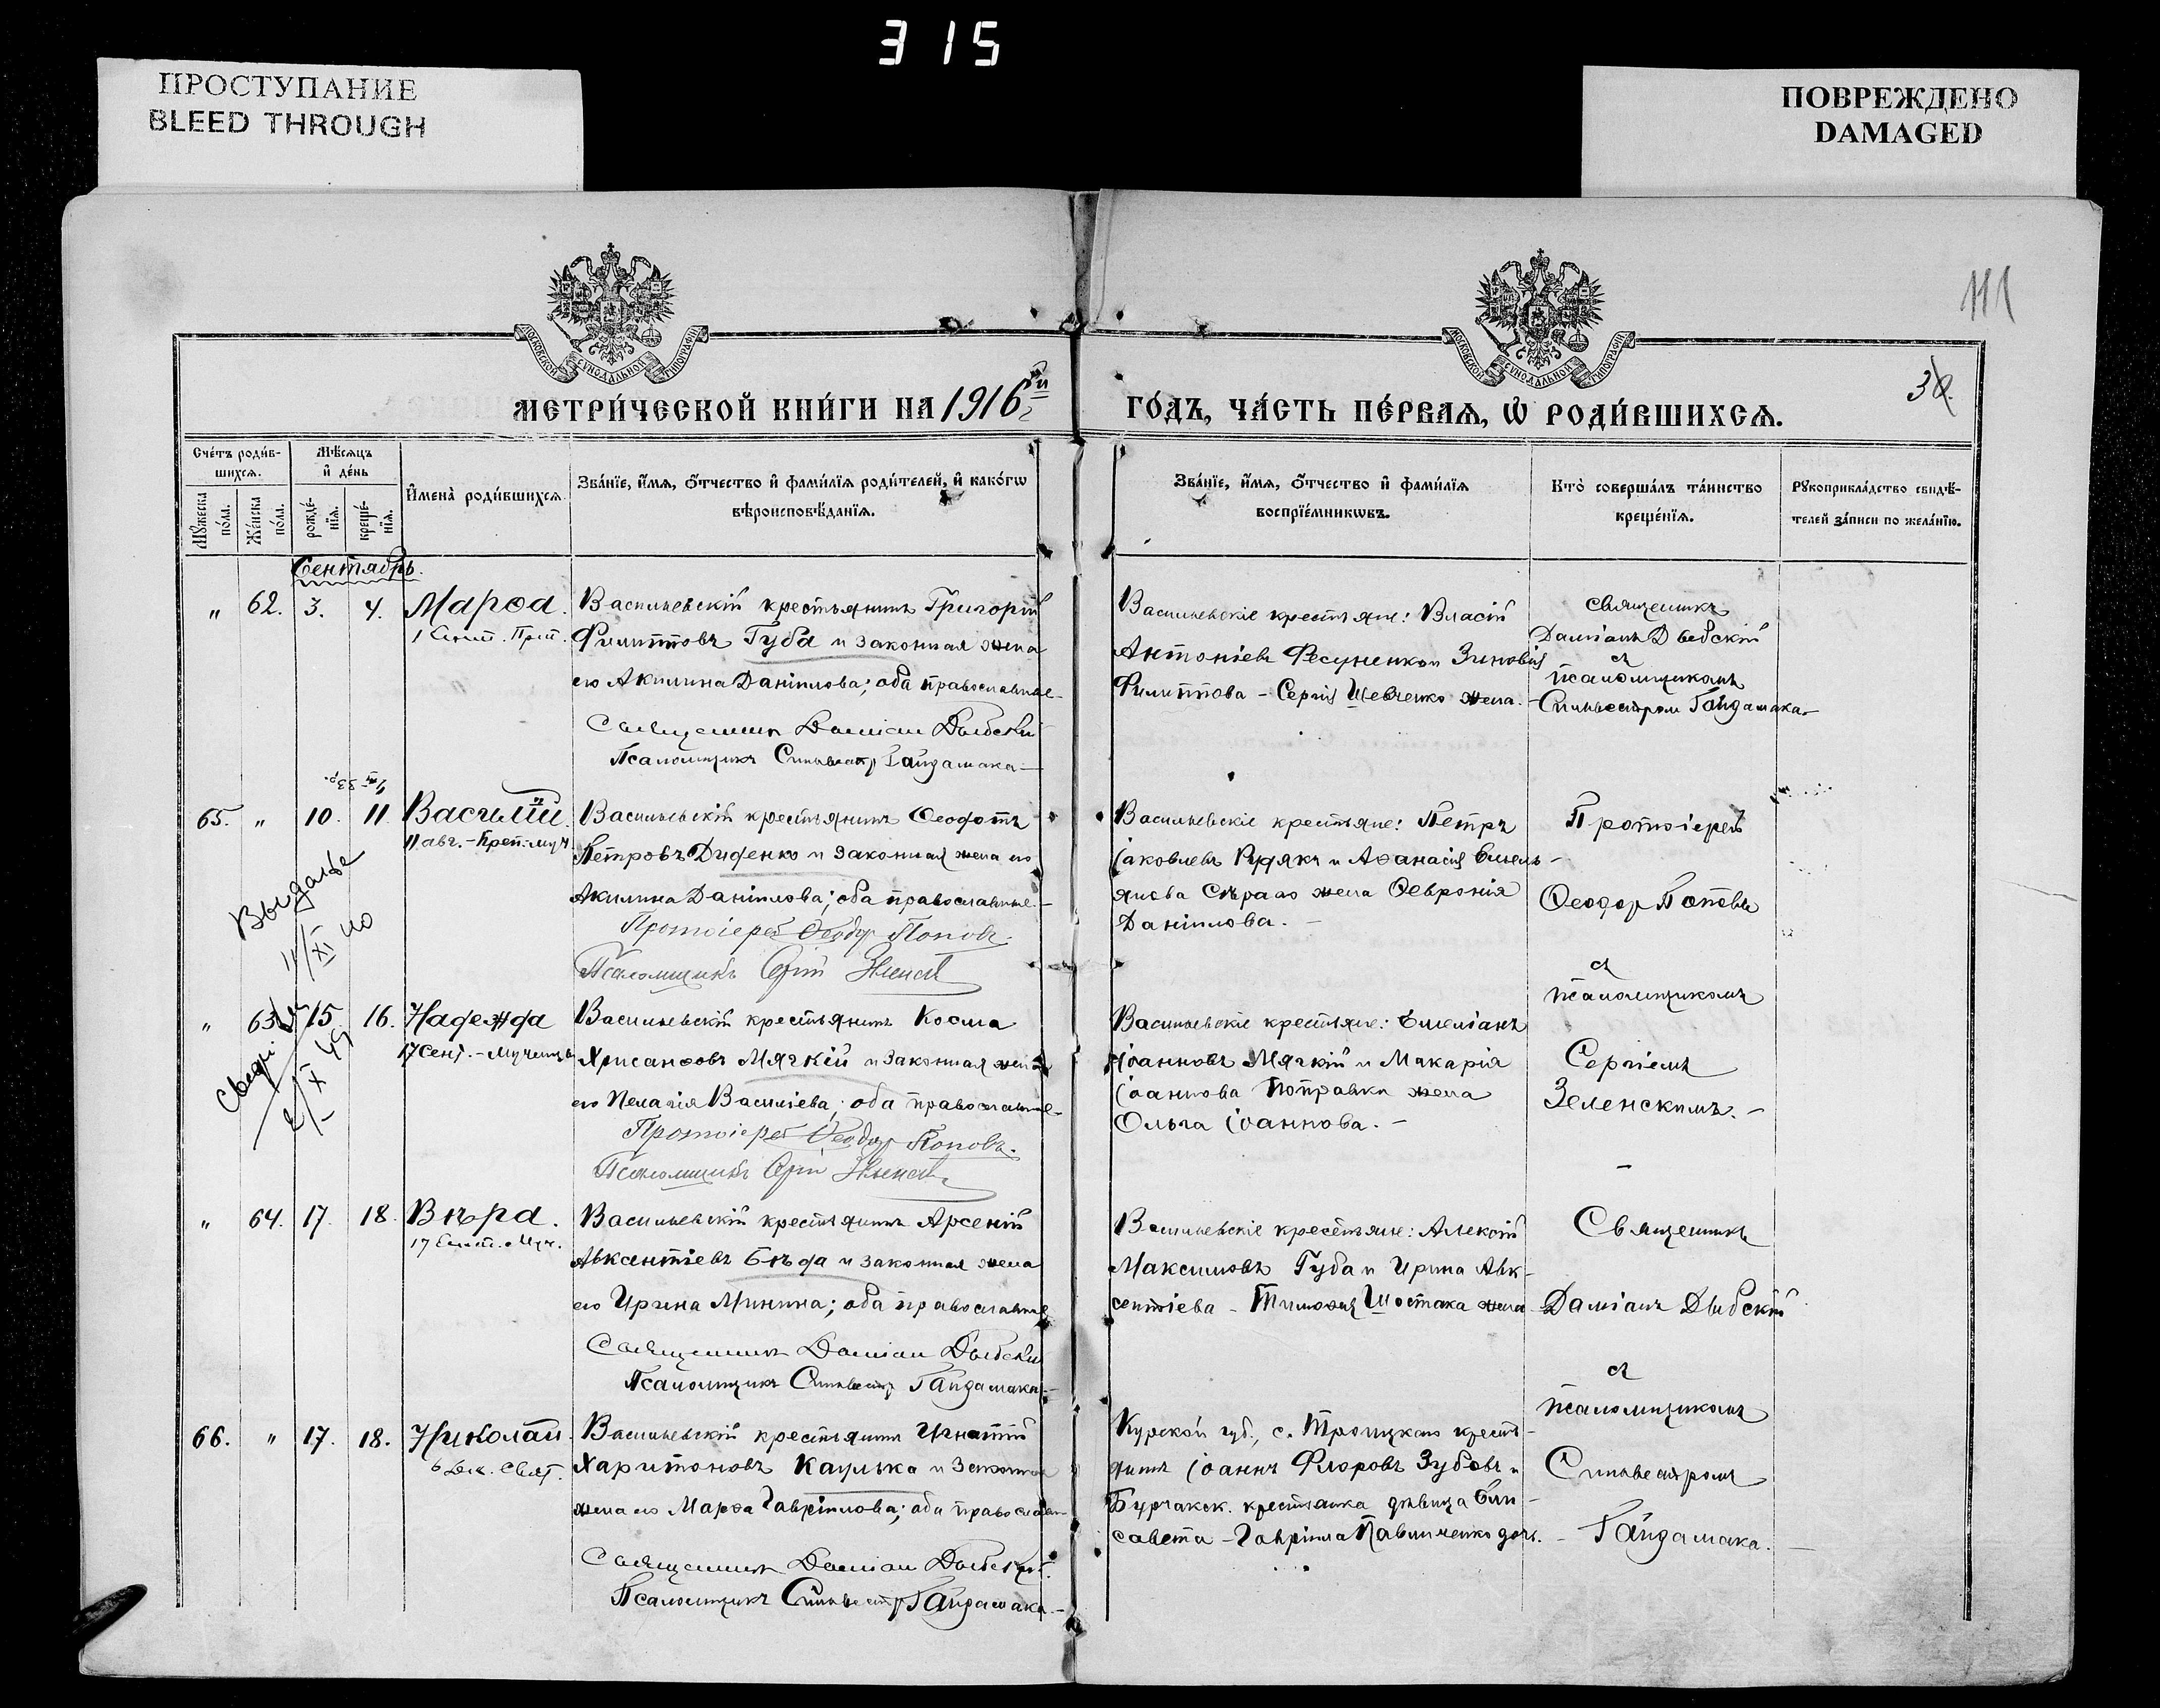 315
ПРОСТУПАНИЕ
BLEED THROUGH
ПОВРЕЖДЕНО
DAMAGED
111
МОСКОВСКОЙ СѴНОДАЛЬНОЙ ТИПОГРАФІИ
МОСКОВСКОЙ СѴНОДАЛЬНОЙ ТИПОГРАФІИ
МЕТРИ́ЧЕСКОЙ КНИ́ГИ НА 1916й
ГО́ДЪ, ЧА́СТЬ ПЕ́РВАѦ, Ѡ҆ РОДИ́ВШИХСѦ.
Сче́тъ роди́вшихсѧ.
Мѣ́сѧцъ и҆ де́нь
Мꙋ́жеска по́ла.
Же́нска по́ла.
рожде́нїѧ.
креще́нїѧ.
И҆мена̀ роди́вшихсѧ.
Зва́нїе, и҆́мѧ, ѻ҆́тчество и҆ фами́лїѧ роди́телей, и҆ како́гѡ
вѣроисповѣ́данїѧ.
Зва́нїе, и҆́мѧ, ѻ҆́тчество и҆ фами́лїѧ
воспрїе́мникѡвъ.
Кто̀ соверша́лъ та́инство
креще́нїѧ.
Рꙋкоприкла́дство свидѣ́-
телей за́писи по жела́нїю.
Сентябрь.
" 62. 3. 4. Марѳа.
1 Сент. Прп.
Васильевскій крестьянинъ Григорій
Филипповъ Губа и законная жена
его Акилина Даніилова; оба православные
Священникъ Даміанъ
Псаломщикъ Сильвестръ Гайдамака
Васильевскіе крестьяне: Власій
Антоніевъ Фесуненко и Зиновія
Филиппова - Сергія Шевченко жена.
священникъ
Даміанъ
съ
псаломщикомъ
Сильвестромъ Гайдамака
65. " 10. 11 Василій.
11 авг. - Преп.-муч.
Васильевскій крестьянинъ Ѳеодотъ
Петровъ Диденко и законная жена его
Акилина Даніилова; оба православные.
Протоіерей Ѳеодоръ Поповъ.
Псаломщикъ Сергій
Васильевскіе крестьяне: Петръ
Іаковлевъ Рудякъ и Аѳанасія Емель-
янова Сѣраго жена Ѳевронія
Даніилова. -
Протоіерей
Ѳеодоръ Поповъ
съ
псаломщикомъ
Сергіемъ
Зеленскимъ. -
" 63. 15 16. Надежда
17 Сент. - Мученицы
Васильевскій крестьянинъ Косма
Хрисанѳовъ Мягкій и законная жена
его Пелагія Василіева; оба православные
Протоіерей Ѳеодоръ Поповъ.
Псаломщикъ Сергій
Васильевскіе крестьяне: Емеліанъ
Іоанновъ Мягкій и Макарія
Іоаннова Поправки жена
Ольга Іоаннова. -
" 64. 17. 18. Вѣра.
17 Сент. Муч.
Васильевскій крестьянинъ Арсеній
Авксентіевъ Бѣда и законная жена
его Ирина Минина; оба православные
Священникъ Даміанъ
Псаломщикъ Сильвестръ Гайдамака
Васильевскіе крестьяне: Алексій
Максимовъ Губа и Ирина Авк-
сентіева - Тимоѳея Шостака жена
Священникъ
Даміанъ
съ
псаломщикомъ
Сильвестромъ
Гайдамака.
66. " 17. 18. Николай.
6 Дек. Свят.
Васильевскій крестьянинъ Игнатій
Харитоновъ Кацулька и законная
жена его Марѳа Гавріилова; оба православн
Священникъ Даміанъ
Псаломщикъ Сильвестръ Гайдамака
Курской губ., с. Троицкаго кресть-
янинъ Іоаннъ Флоровъ Зубовъ и
Бурчакск. крестьянка дѣвица Ели-
савета - Гавріила Павличенко дочь.